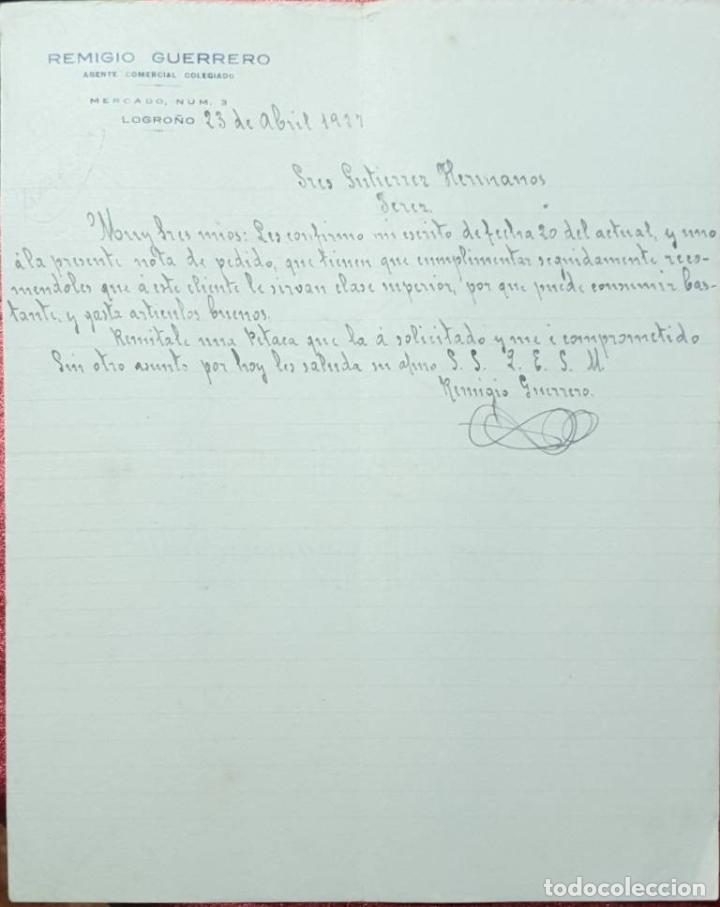 REMIGIO GUERRERO
AGENTE COMERCIAL COLEGIADO
MERCADO, NUM. 3
LOGROÑO 23 de Abril 1937
Sres Gutierrez Hermanos
Jerez.
Muy Sres mios: Les confirmo mi escrito de fecha 20 del actual, y uno
á la presente nota de pedido, que tienen que cumplimentar seguidamente reco-
mendoles que á este cliente le sirvan clase superior, por que puede consumir bas-
tante, y gasta articulos buenos.
Remitale una Petaca que la á solicitado y me é comprometido
Sin otro asunto por hoy les saluda su afmo S. S. Q. E. S. M
Remigio Guerrero.
todocoleccion